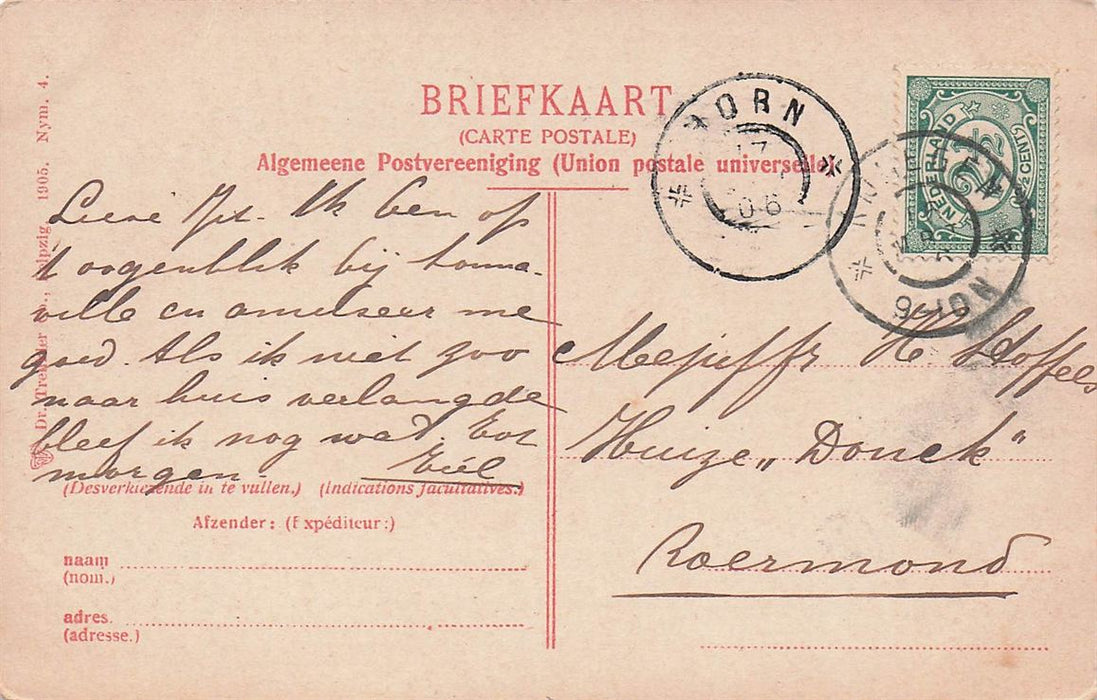 BRIEFKAART
(CARTE POSTALE)
Algemeene Postvereeniging (Union postale universelle)
Dr. Trenkler Co., Leipzig 1905. Nym. 4.
HORN
17
06
NEDERLAND
2½
CENT
HORN
Lieve Ik ben op
't oogenblik bij
ville en amuseer me
goed. Als ik niet zoo
naar huis verlangde
bleef ik nog wat. Tot
morgen
(Desverkiezende in te vullen.) (Indications facultatives.)
Afzender: (Expéditeur:)
naam
(nom.)
adres.
(adresse.)
Mejuffr H Stoffels
Huize „Donck"
Roermond